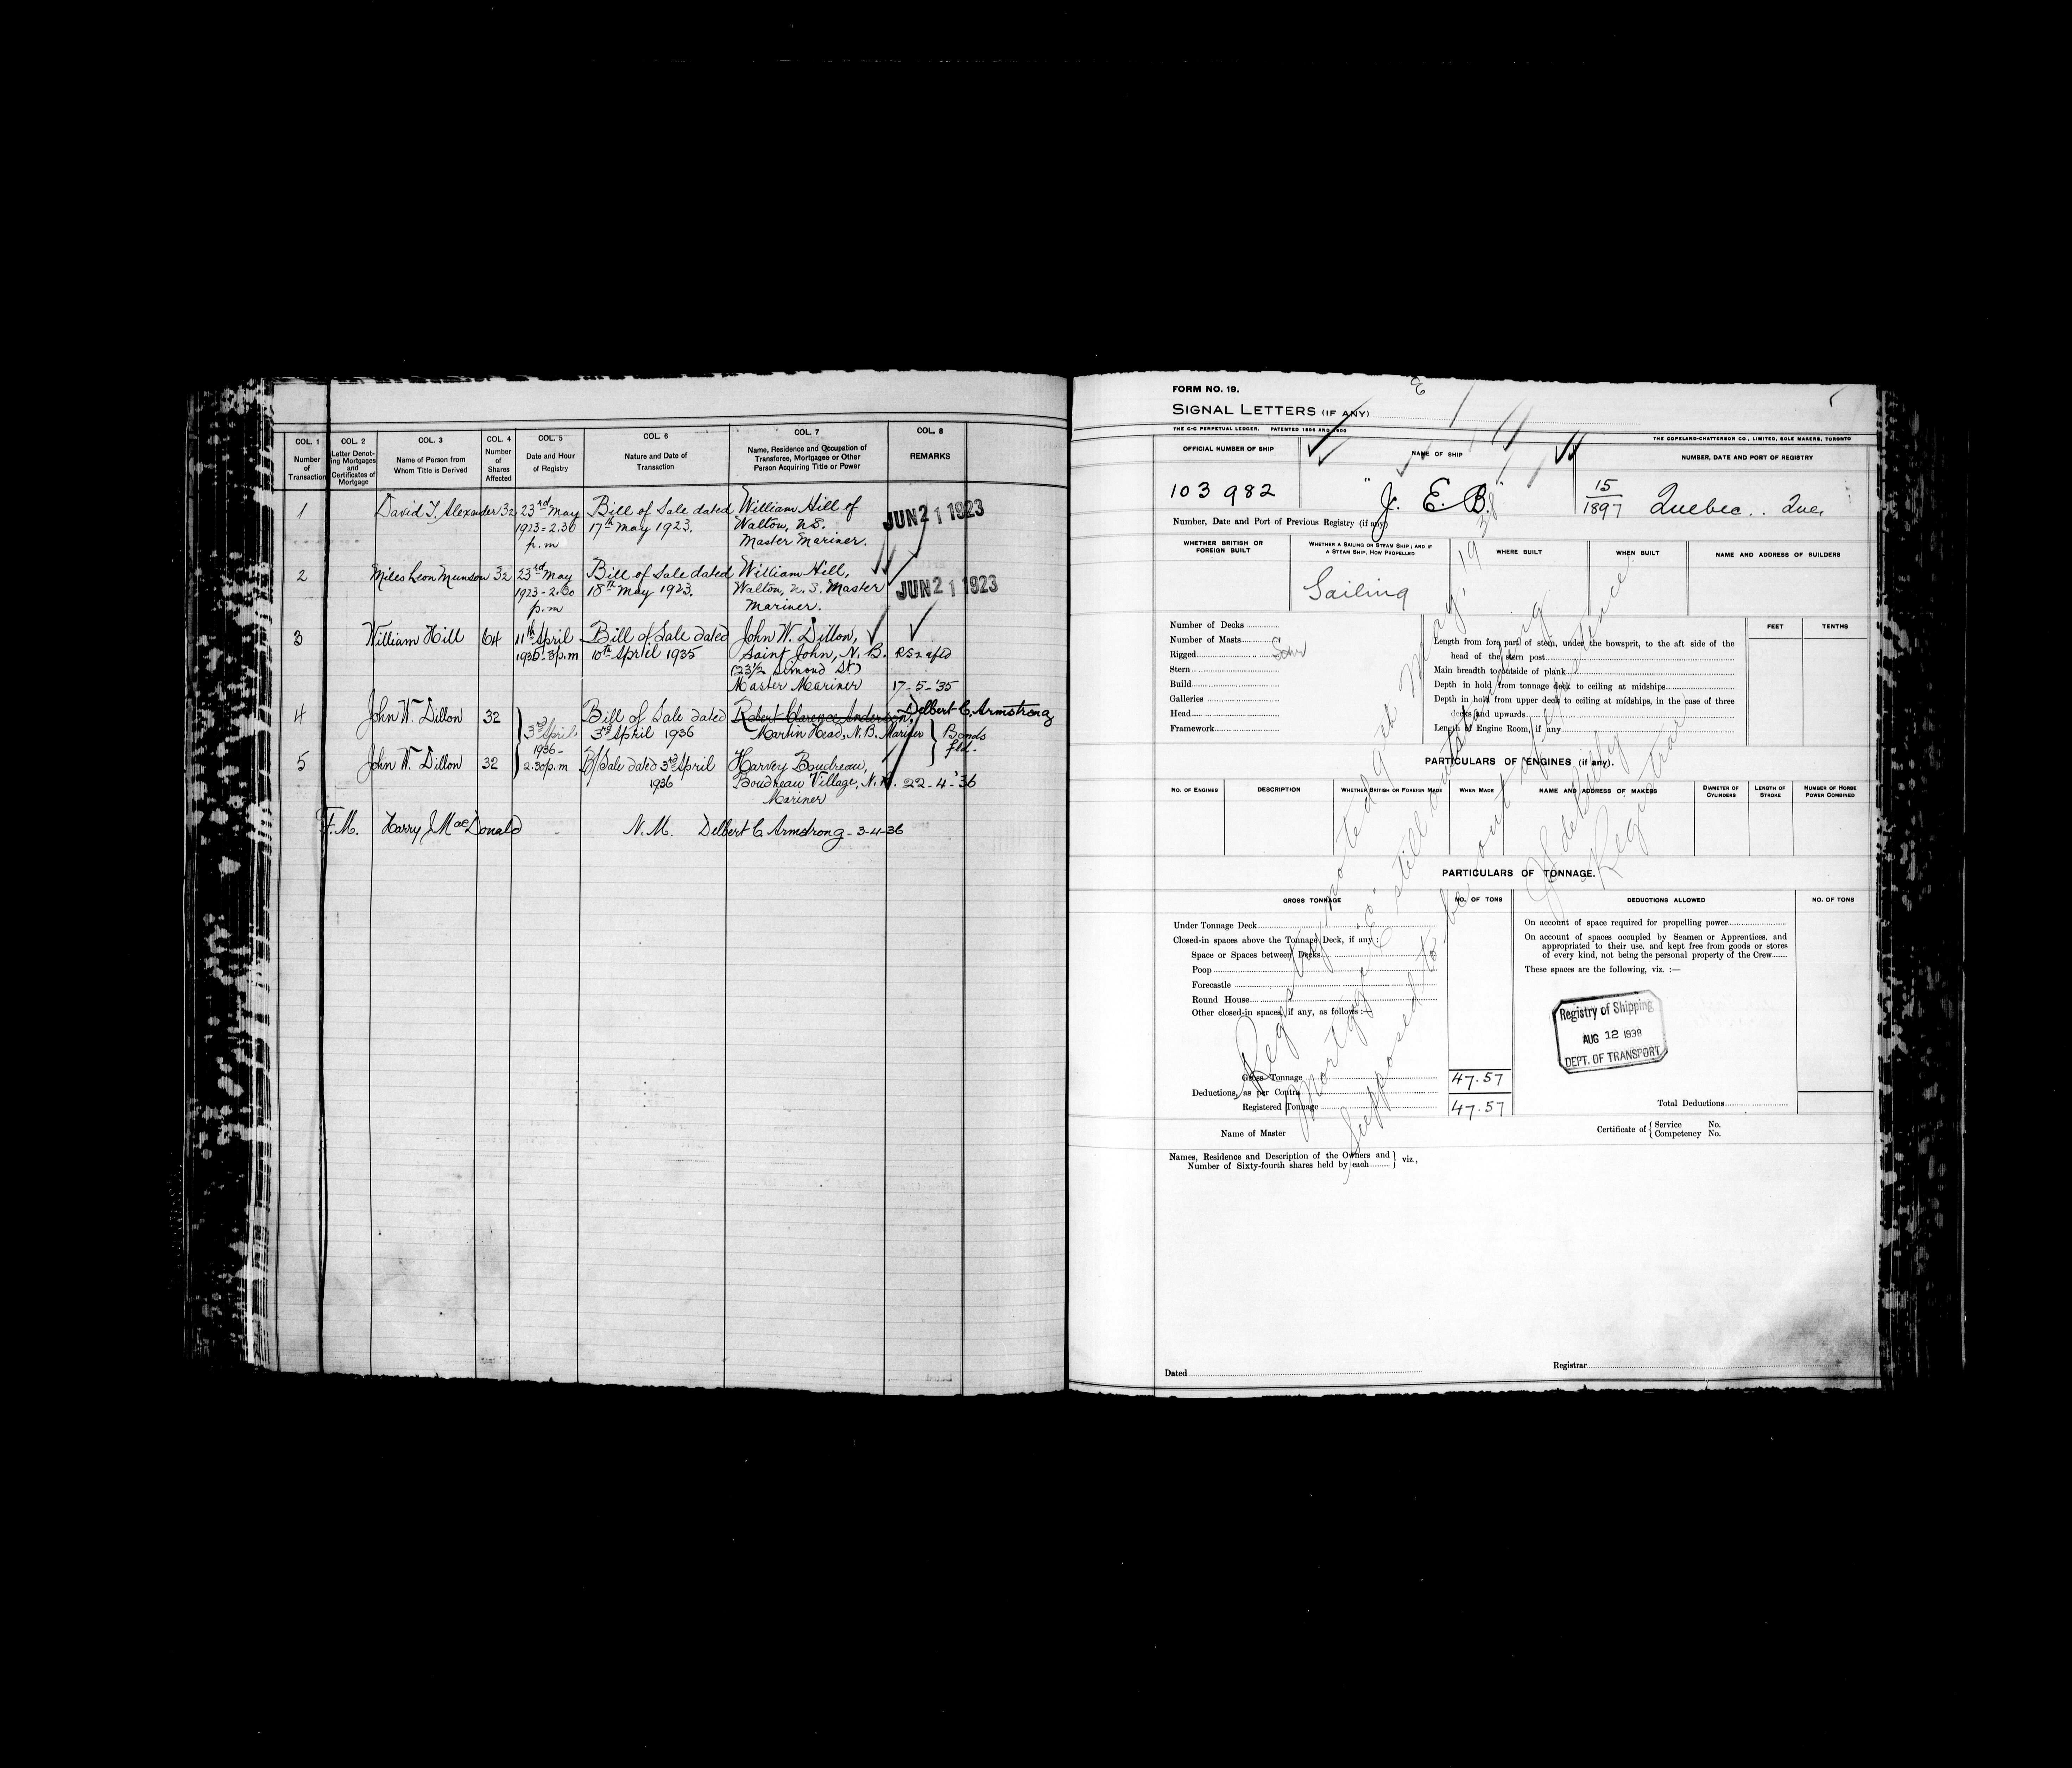 COL. 1
Number
of
Transaction
COL. 2
Letter Denot-
ing Mortgages
and
Certificates of
Mortgage
COL. 3
Name of Person from
Whom Title is Derived
COL. 4
Number
of
Shares
Affected
COL. 5
Date and Hour
of Registry
COL. 6
Nature and Date of
Transaction
COL. 7
Name, Residence and Occupation of
Transferee, Mortgagee or Other
Person Acquiring Title or Power
COL. 8
REMARKS
1 David T. Alexander 32 23rd May Bill of Sale dated William Hill of JUN 21 1923
1923 = 2.30 17th May 1923. Walton, N.S.
p.m Master Mariner.
2 Miles Leon Munson 32 23rd May Bill of Sale dated William Hill, JUN 21 1923
1923 - 2.30 18th May 1923. Walton, N.S. Master
p.m Mariner.
3 William Hill 64 11th April Bill of Sale dated John W. Dillon,
1935 - 3p.m 10th April 1935 Saint John, N.B.
(23½ Simond St.)
Master Mariner 17-5-'35
4 John W. Dillon 32 Bill of Sale dated Robert Clarence Anderson, Delbert C. Armstrong
3rd April 3rd April 1936 Martin Head, N.B. Mariner Bonds
1936 - fld.
5 John W. Dillon 32 2.30p.m B/Sale dated 3rd April Harvey Boudreau,
1936 Boudreau Village, N.B. 22-4-'36
Mariner
F.M. Harry J. MacDonald - N.M. Delbert C. Armstrong - 3-4-36
FORM NO. 19.
SIGNAL LETTERS (IF ANY)
THE C-C PERPETUAL LEDGER. PATENTED 1896 AND 1900
THE COPELAND-CHATTERSON CO., LIMITED, SOLE MAKERS, TORONTO
OFFICIAL NUMBER OF SHIP
NAME OF SHIP
NUMBER, DATE AND PORT OF REGISTRY
103 982 "J. E. B." 15/1897 Quebec .. Que.
Number, Date and Port of Previous Registry (if any)
WHETHER BRITISH OR
FOREIGN BUILT
WHETHER A SAILING OR STEAM SHIP; AND IF
A STEAM SHIP, HOW PROPELLED
WHERE BUILT
WHEN BUILT
NAME AND ADDRESS OF BUILDERS
Sailing
Number of Decks
Number of Masts
Rigged Schr
Stern
Build
Galleries
Head
Framework
FEET
TENTHS
Length from fore part of stem, under the bowsprit, to the aft side of the
head of the stern post
Main breadth to outside of plank
Depth in hold from tonnage deck to ceiling at midships
Depth in hold from upper deck to ceiling at midships, in the case of three
decks and upwards
Length of Engine Room, if any
PARTICULARS OF ENGINES (if any).
NO. OF ENGINES
DESCRIPTION
WHETHER BRITISH OR FOREIGN MADE
WHEN MADE
NAME AND ADDRESS OF MAKERS
DIAMETER OF
CYLINDERS
LENGTH OF
STROKE
NUMBER OF HORSE
POWER COMBINED
PARTICULARS OF TONNAGE.
GROSS TONNAGE
NO. OF TONS
DEDUCTIONS ALLOWED
NO. OF TONS
Under Tonnage Deck
Closed-in spaces above the Tonnage Deck, if any :
Space or Spaces between Decks
Poop
Forecastle
Round House
Other closed-in spaces, if any, as follows :—
Gross Tonnage 47.57
Deductions, as per Contra
Registered Tonnage 47.57
On account of space required for propelling power
On account of spaces occupied by Seamen or Apprentices, and
appropriated to their use, and kept free from goods or stores
of every kind, not being the personal property of the Crew
These spaces are the following, viz. :—
Registry of Shipping
AUG 12 1938
DEPT. OF TRANSPORT
Total Deductions
Name of Master
Certificate of { Service No.
Competency No.
Names, Residence and Description of the Owners and
Number of Sixty-fourth shares held by each } viz.,
Registry noted 9th May, 1938.
Mortgage "C" still outstanding
Supposed to be out of existence.
Registrar
Dated
Registrar